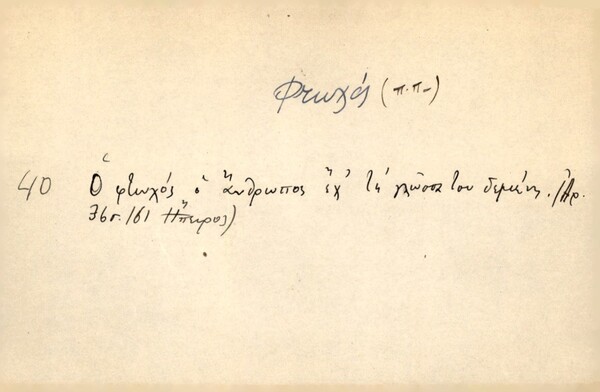 Φτωχός (π.π.-)
40 Ὁ φτωχός ὁ ἄνθρωπος ἔχ' τή γλῶσσα του δεμένη. (Ἀρ.
361/61 Ἤπειρος)